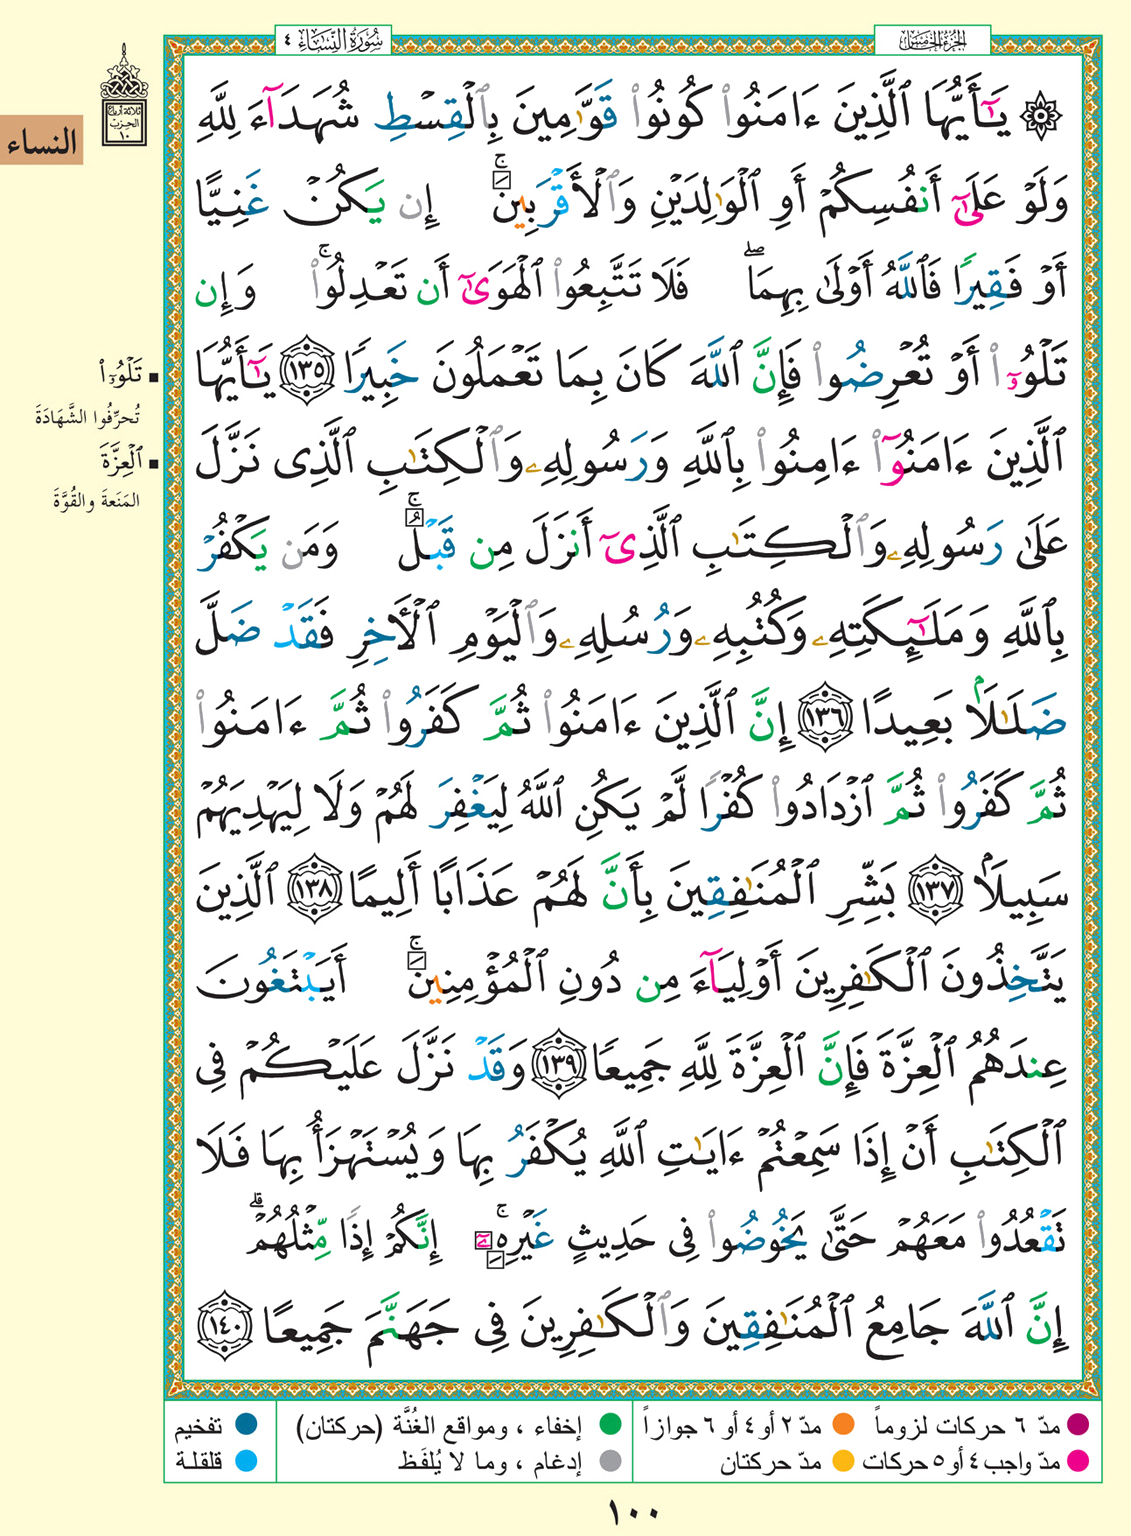 سُورَةُ النِّسَاءِ ٤
الجُزْءُ الخَامِسُ
ثلاثة أرباع
الحِزبْ
١٠
النساء
۞ يَـٰٓأَيُّهَا ٱلَّذِينَ ءَامَنُوا۟ كُونُوا۟ قَوَّٰمِينَ بِٱلْقِسْطِ شُهَدَآءَ لِلَّهِ
وَلَوْ عَلَىٰٓ أَنفُسِكُمْ أَوِ ٱلْوَٰلِدَيْنِ وَٱلْأَقْرَبِينَ ۚ إِن يَكُنْ غَنِيًّا
أَوْ فَقِيرًا فَٱللَّهُ أَوْلَىٰ بِهِمَا ۖ فَلَا تَتَّبِعُوا۟ ٱلْهَوَىٰٓ أَن تَعْدِلُوا۟ ۚ وَإِن
تَلْوُۥٓا۟ أَوْ تُعْرِضُوا۟ فَإِنَّ ٱللَّهَ كَانَ بِمَا تَعْمَلُونَ خَبِيرًا ١٣٥ يَـٰٓأَيُّهَا
ٱلَّذِينَ ءَامَنُوٓا۟ ءَامِنُوا۟ بِٱللَّهِ وَرَسُولِهِۦ وَٱلْكِتَـٰبِ ٱلَّذِى نَزَّلَ
عَلَىٰ رَسُولِهِۦ وَٱلْكِتَـٰبِ ٱلَّذِىٓ أَنزَلَ مِن قَبْلُ ۚ وَمَن يَكْفُرْ
بِٱللَّهِ وَمَلَـٰٓئِكَتِهِۦ وَكُتُبِهِۦ وَرُسُلِهِۦ وَٱلْيَوْمِ ٱلْـَٔاخِرِ فَقَدْ ضَلَّ
ضَلَـٰلًۢا بَعِيدًا ١٣٦ إِنَّ ٱلَّذِينَ ءَامَنُوا۟ ثُمَّ كَفَرُوا۟ ثُمَّ ءَامَنُوا۟
ثُمَّ كَفَرُوا۟ ثُمَّ ٱزْدَادُوا۟ كُفْرًا لَّمْ يَكُنِ ٱللَّهُ لِيَغْفِرَ لَهُمْ وَلَا لِيَهْدِيَهُمْ
سَبِيلًۢا ١٣٧ بَشِّرِ ٱلْمُنَـٰفِقِينَ بِأَنَّ لَهُمْ عَذَابًا أَلِيمًا ١٣٨ ٱلَّذِينَ
يَتَّخِذُونَ ٱلْكَـٰفِرِينَ أَوْلِيَآءَ مِن دُونِ ٱلْمُؤْمِنِينَ ۚ أَيَبْتَغُونَ
عِندَهُمُ ٱلْعِزَّةَ فَإِنَّ ٱلْعِزَّةَ لِلَّهِ جَمِيعًا ١٣٩ وَقَدْ نَزَّلَ عَلَيْكُمْ فِى
ٱلْكِتَـٰبِ أَنْ إِذَا سَمِعْتُمْ ءَايَـٰتِ ٱللَّهِ يُكْفَرُ بِهَا وَيُسْتَهْزَأُ بِهَا فَلَا
تَقْعُدُوا۟ مَعَهُمْ حَتَّىٰ يَخُوضُوا۟ فِى حَدِيثٍ غَيْرِهِۦٓ ۚ إِنَّكُمْ إِذًا مِّثْلُهُمْ ۗ
إِنَّ ٱللَّهَ جَامِعُ ٱلْمُنَـٰفِقِينَ وَٱلْكَـٰفِرِينَ فِى جَهَنَّمَ جَمِيعًا ١٤٠
تَلْوُۥٓا۟
تُحرِّفُوا الشَّهَادَةَ
ٱلْعِزَّةَ
المَنَعةَ والقُوَّةَ
مدّ ٦ حركات لزوماً
مدّ ٢ أو ٤ أو ٦ جوازاً
إخفاء ، ومواقع الغُنَّة (حركتان)
تفخيم
مدّ واجب ٤ أو ٥ حركات
مدّ حركتان
إدغام ، وما لا يُلفَظ
قلقلة
١٠٠